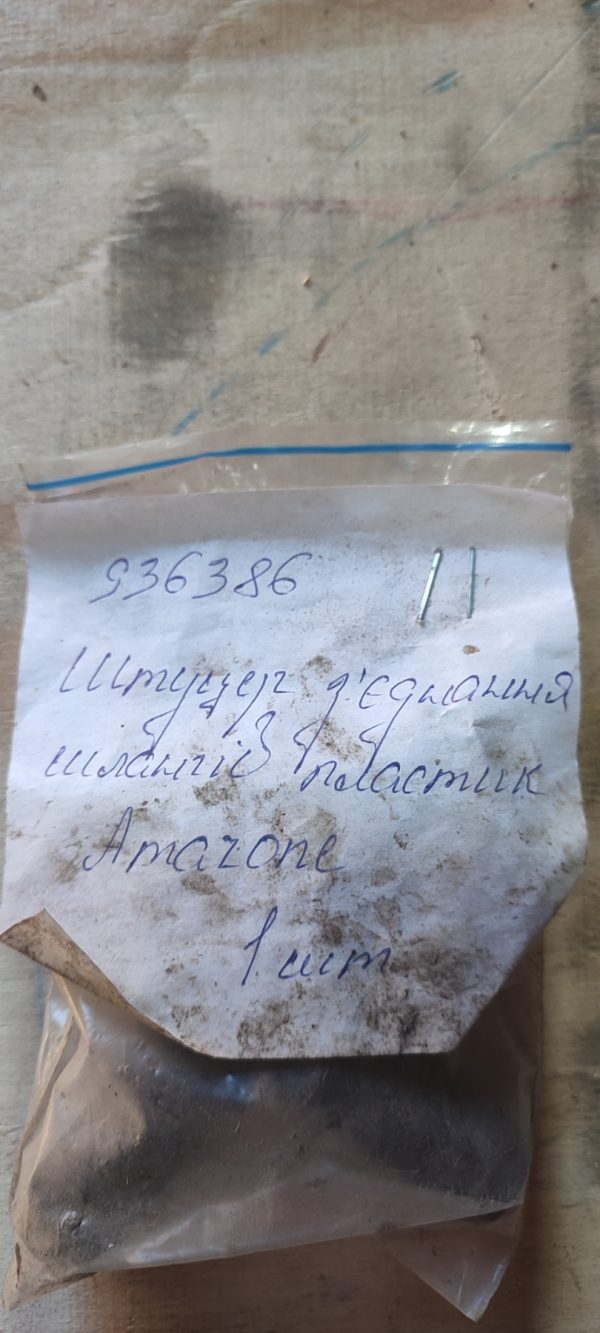 936386
Штуцер з'єднання
шлангів пластик
Amazone
1 шт